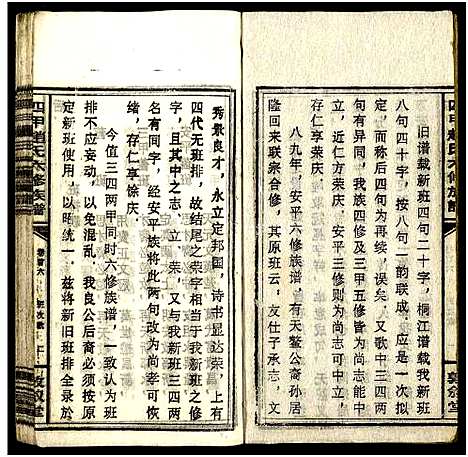 旧谱载新班四句二十字，桐江谱载我新班
八句四十字，按八句一韵联成，应是一次拟
定，而称后四句为再续，误矣，又歌中三四两
句，与我异同，我族四修及三甲五修皆为尚志能中
立，近仁方荣庆，安平三修则为尚志可中立，
存仁享荣庆
八九年，安平六修族谱，有天鳌公裔孙居
隆回来联宗合修，其原班云，友仕子承志，文
秀景良才，永立定邦国，诗书显达荣，上有
四代无班排，故结尾之荣字相当于我新班之修
字，且其中之志、立、荣，又与我新班三四两
句有同字，经安平族将此两句改为尚孝可恢
名，存仁享徐庆。
今值三四两甲同时六修族谱，一致认为班
排不应妄动，以免混乱，我良公后裔必须按原
定新班使用，以昭统一，兹将新旧班排全录於
四甲赵氏六修族谱
卷首六
敦叙堂
四甲赵氏六修族谱
敦叙堂